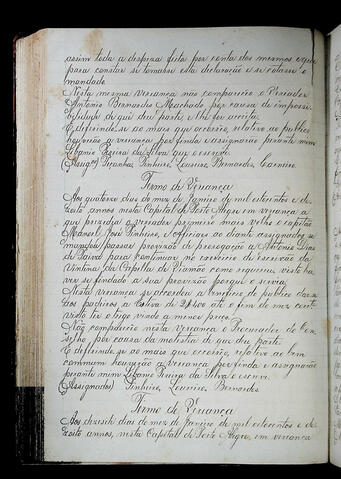 assim toda a despeza feita por conta dos mesmos e que
para constar se tomasse esta declaração e se retirou o
mandado.
Nesta mesma vereança não compareceo o Vereador
Antonio Bernardes Machado por causa de impossi-
bilidade de que deu parte e lhe foi aceita.
E deferindo-se ao mais que occorrêo, relativo ao publico
houverão a vereança por finda e assignarão perante mim
Libanio Pereira da Silva que o escrevi.
Pinheiro, Loureiro, Bernardes, Carneiro
Termo de Vereança
Aos quatorze dias do mez de Janeiro de mil oitocentos e de-
zoito annos nesta Capital de Porto Alegre em vereança a
que prezidio o vereador primeiro mais velho o capitão
Manoel José Pinheiro, e Officiaes ao diante assignados, se
mandou passar provizão de prorogação a Antonio Dias
de Paiva para continuar no exercicio de Escrivão da
Vintena da Capella de Viamão como requereu, visto ha-
ver se findado a sua provizão porque o servia.
Nesta vereança se accordou a beneficio do publico darem
os padeiros, a até o fim do mez corrte
visto ter o trigo vindo a menos preço.
Não compareceo nesta vereança o Procurador do Con-
selho por causa da molestia de que deu parte.
E deferindo-se ao mais que occorrêo, relativo ao bem
commum houverão a vereança por finda e assignarão
perante mim Libanio Pereira da Silva o escrevi.
(Assignados) Pinheiro, Loureiro, Bernardes.
Termo de Verança
Aos dezesete dias do mez de Janeiro de mil oitocentos e de-
zoito annos, nesta Capital de Porto Alegre, em vereança